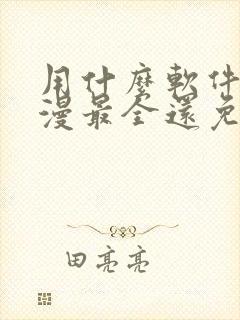 用什麼軟件
漫最全還免
田亮亮